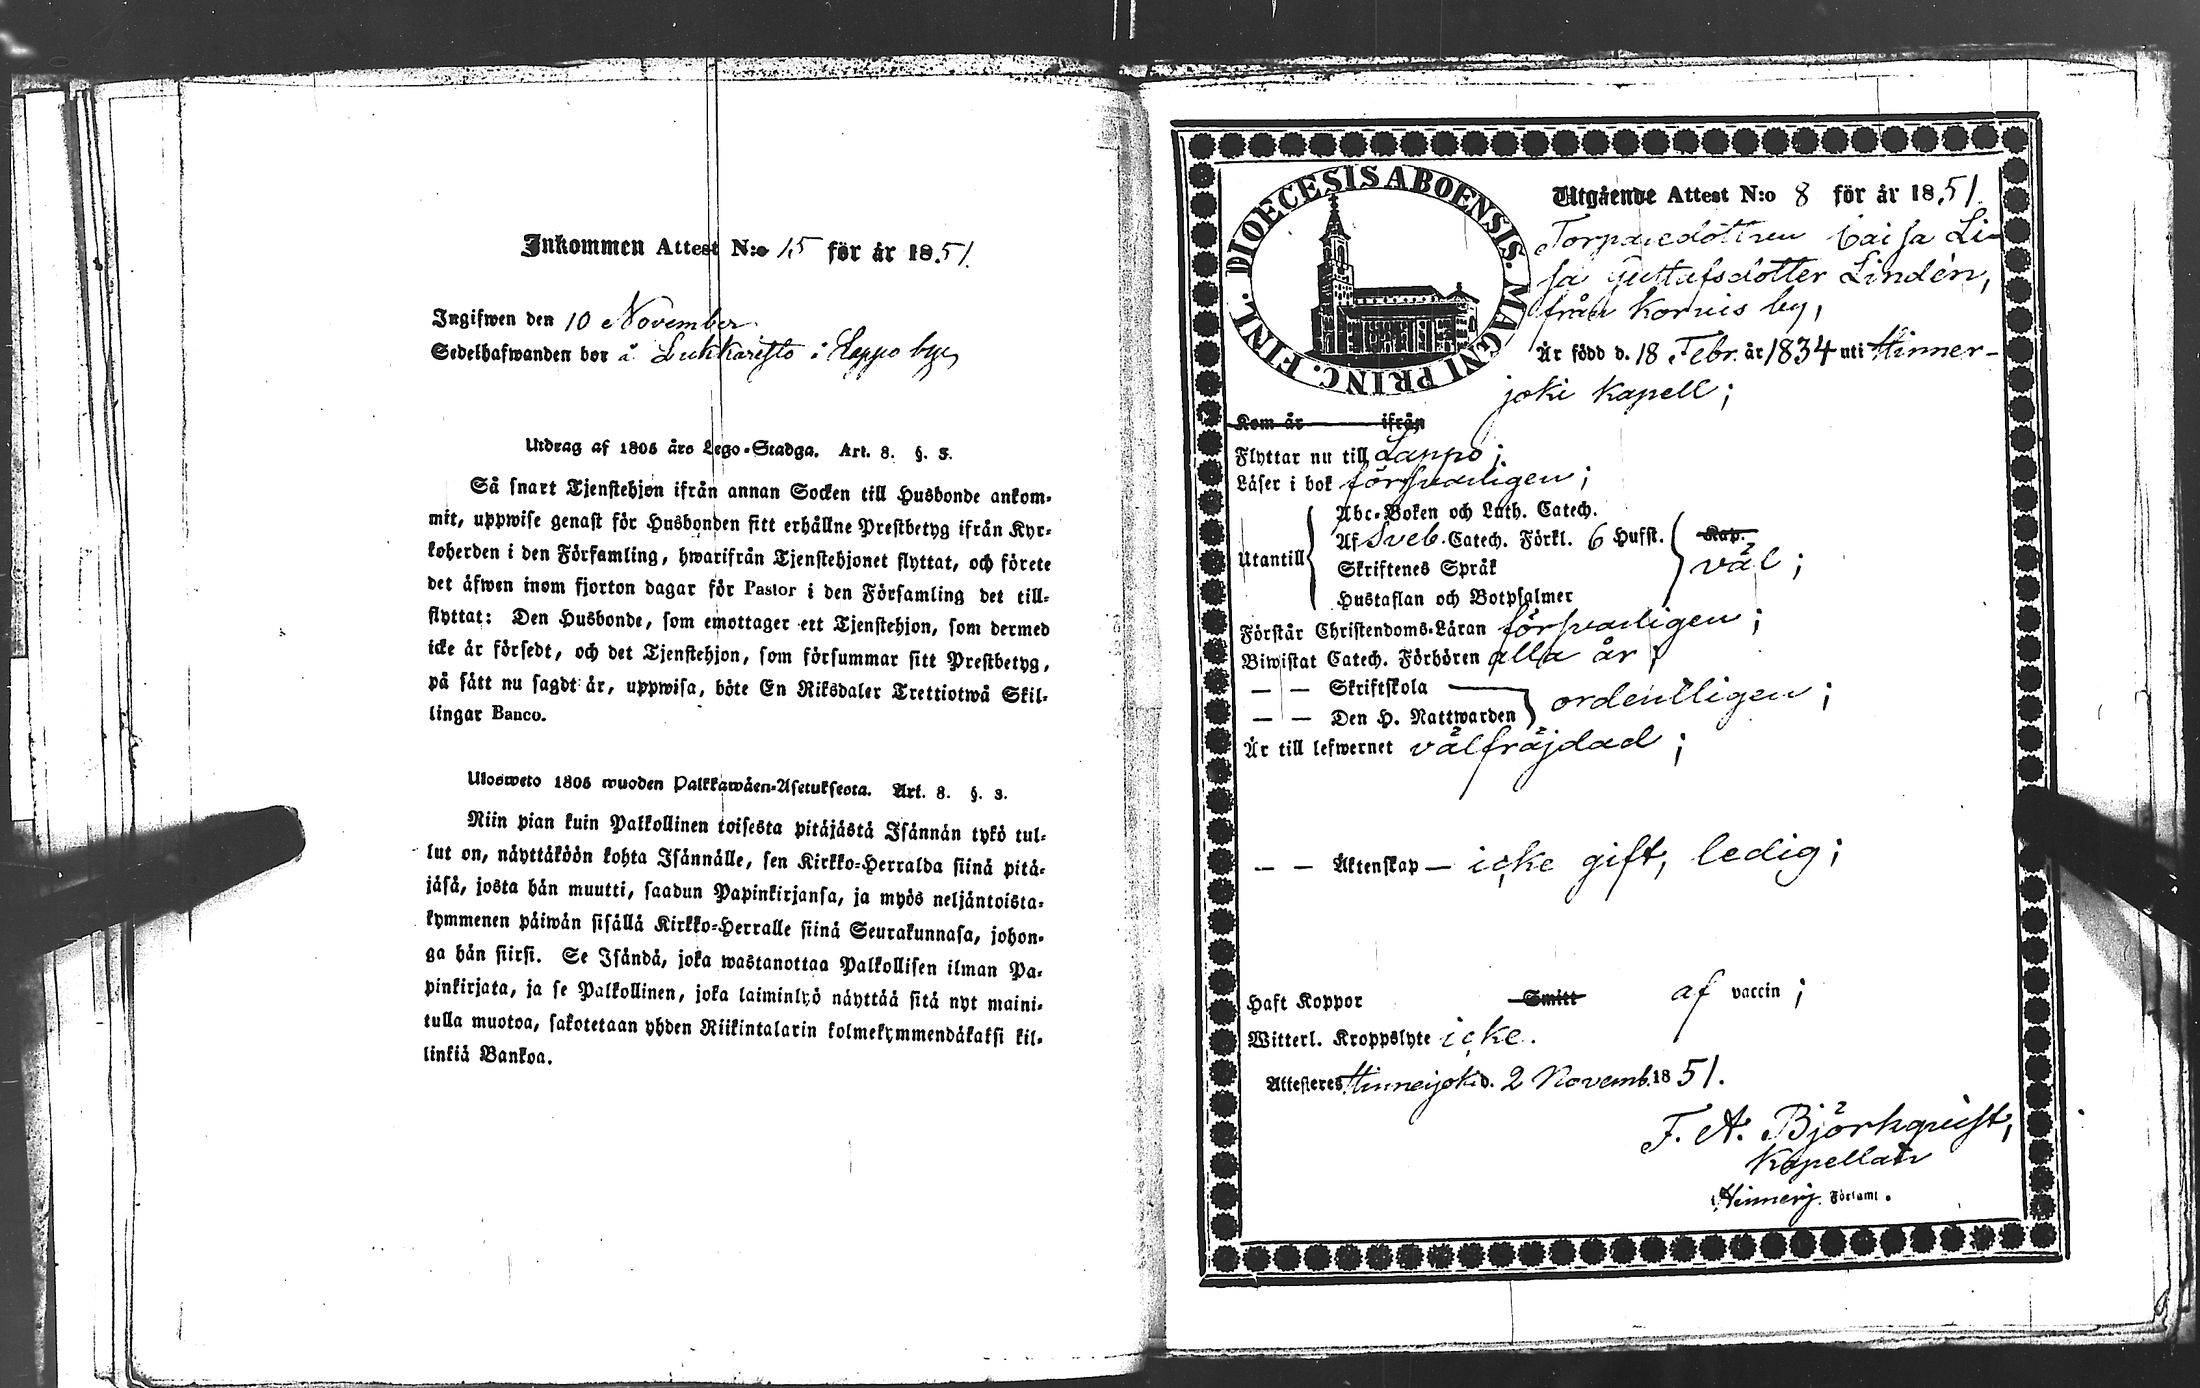 Inkommen Attest N:o 15 för år 1851.
Ingifwen den 10 November
Sedelhafwanden bor å Lukkaristo i Lappo by,
Utdrag af 1805 års Lego-Stadga. Art. 8. §. 3.
Så snart Tjenstehjon ifrån annan Socken till Husbonde ankom-
mit, uppwise genast för Husbonden sitt erhållne Prestbetyg ifrån Kyr-
koherden i den Församling, hwarifrån Tjenstehjonet flyttat, och förete
det äfwen inom fjorton dagar för Pastor i den Församling det till-
flyttat: Den Husbonde, som emottager ett Tjenstehjon, som dermed
icke är försedt, och det Tjenstehjon, som försummar sitt Prestbetyg,
på sätt nu sagdt är, uppwisa, böte En Riksdaler Trettiotwå Skil-
lingar Banco.
Ulosweto 1805 wuoden Palkkawäen-Asetuksesta. Art. 8. §. 3.
Niin pian kuin Palkollinen toisesta pitäjästä Isännän tykö tul-
lut on, näyttäköön kohta Isännälle, sen Kirkko-Herralda siinä pitä-
jäsä, josta hän muutti, saadun Papinkirjansa, ja myös neljäntoista-
kymmenen päiwän sisällä Kirkko-Herralle siinä Seurakunnasa, johon-
ga hän siirsi. Se Isändä, joka wastanottaa Palkollisen ilman Pa-
pinkirjata, ja se Palkollinen, joka laiminlyö näyttää sitä nyt maini-
tulla muotoa, sakotetaan yhden Riikintalarin kolmekymmendäkaksi kil-
linkiä Bankoa.
DIOECESIS ABOENSIS. MAGNI PRINC. FINL.
Utgående Attest N:o 8 för år 1851.
Torparedottren Caisa Li-
sa Gustafsdotter Lindén,
från Korvis by,
Är född d. 18 Febr. år 1834 uti Hinner-
joki Kapell;
Kom år ifrån
Flyttar nu till Lappo;
Läser i bok försvarligen;
Abc-Boken och Luth. Catech.
Utantill Af Sveb. Catech. Förkl. 6 Hufst. Kap. väl;
Skriftenes Språk
Hustaflan och Botpsalmer
Förstår Christendoms-Läran försvarligen;
Biwistat Catech. Förhören alla år;
— — Skriftskola
— — Den H. Nattwarden ordentligen;
Är till lefwernet välfräjdad;
— — Äktenskap — icke gift, ledig;
Haft Koppor Smitt af vaccin;
Witterl. Kroppslyte icke.
Attesteres Hinnerjoki d. 2 Novemb. 1851.
F. A. Björkqvist,
Kapellan
i Hinnerj. Församl.